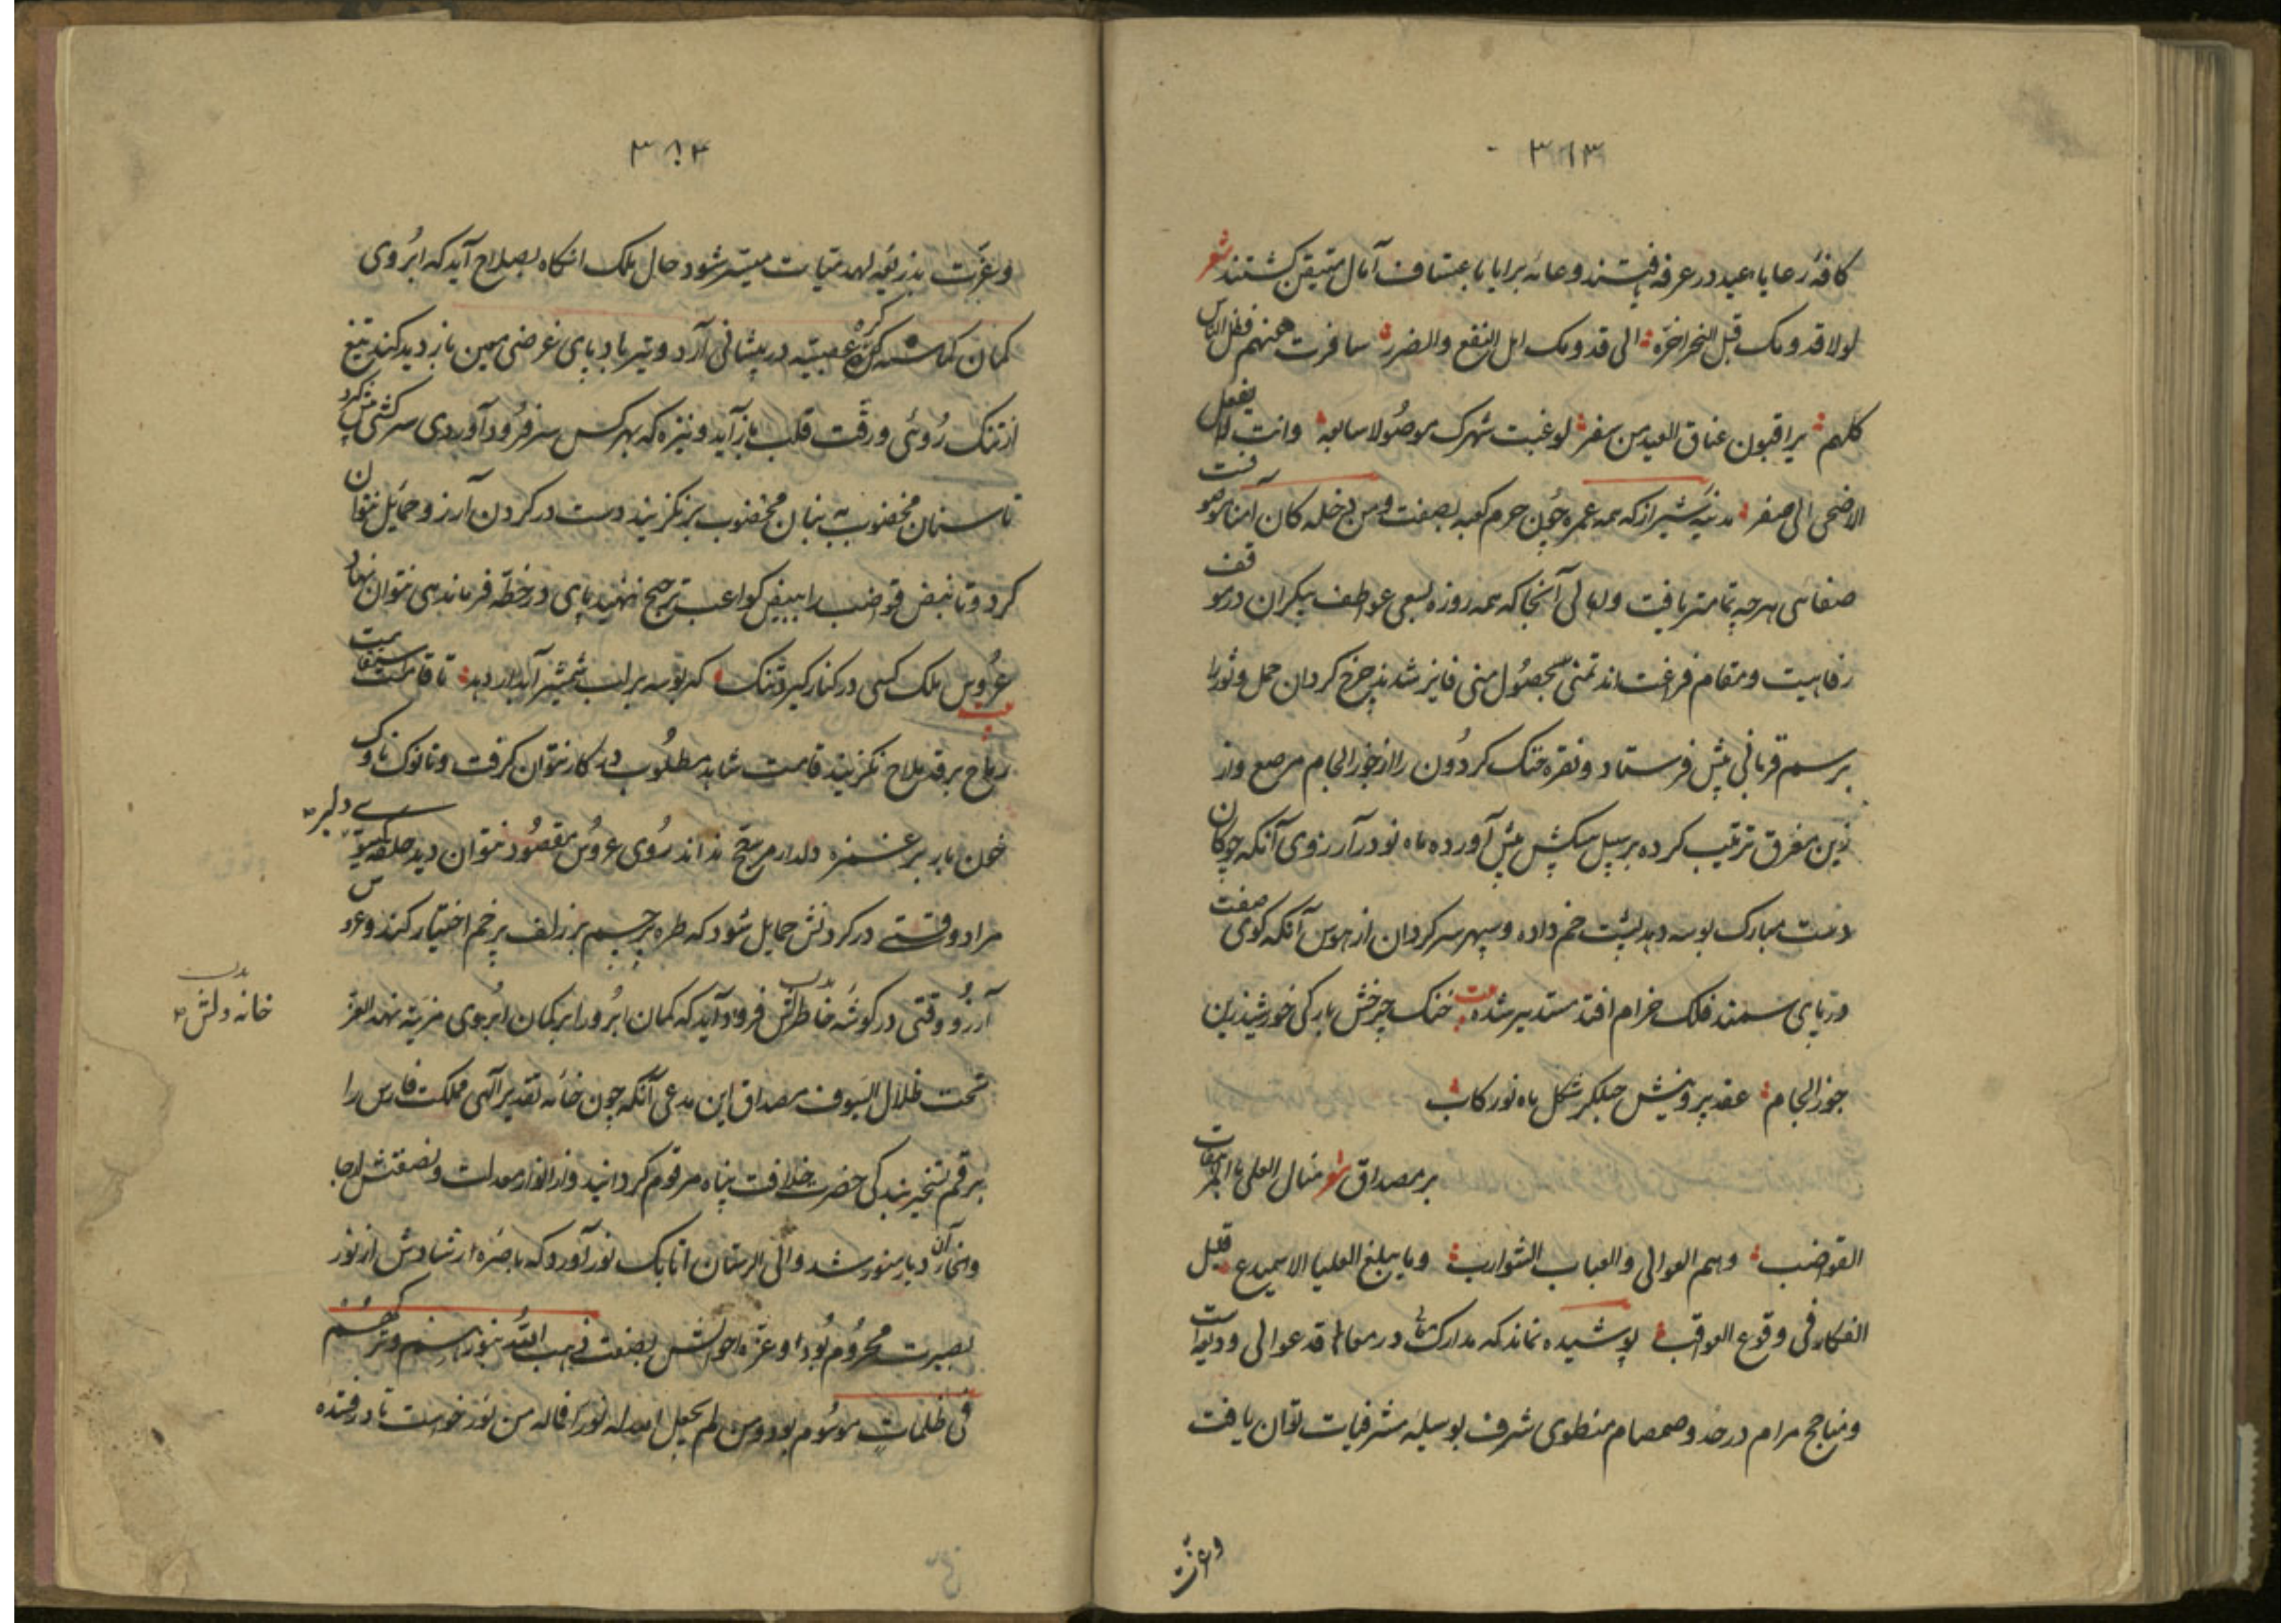 ٣٦٣
كافه رعايا عيد در عرفه يافتند و عامه برايا باعتساف آمال متيقن كشتند شعر
لولا قدومك قبل النحر اخره الى قدومك اهل النفع والضرر سافرت عنهم فظل الناس
كلهم يراقبون عناق العيد من سفر لو غبت شهرك موصولا سابعه وانت
الاضحى الى صفر مدينه شيراز كه همه عمره چون حرم كعبه بصفت ومن دخله كان آمنا موصوفست
صفائى هرچه تمامتر يافت و اهالى آنجا كه همه روزه بسعى عواطف بيكران در موقف
رفاهيت و مقام فراغت اند تمنى بحصول منى فايز شدند چرخ كردان حمل و ثور را
برسم قربانى پيش فرستاد و نقره خنك كردون را از خور لجام مرصع و از
زين مغرق ترتيب كرده بر سبيل پيشكش پيش آورده ماه نو در آرزوى آنكه چوكان
دست مبارك بوسه دهد پشت خم داده و سپهر سركردان از هوس آنكه كوى صفت
در پاى سمند فلك خرام افتد مستدير شده بيت خنك چرخش باركى خورشيد زين
جوزا لجام عقد پروينش شكل ماه نو ركاب
بر مصداق شعر منال العلى بالمرهفات
القواضب وسم العوالى والعباب الشوارب وما يبلغ العليا الا سميدع قليل
الفكار فى وقوع العواقب پوشيده نماند كه مدارك در معاقد عوالى و ديعه است
و مناجح مرام در حد و صمصام منطوى شرف بوسيله مشرفيات توان يافت
وعزت
٣٨٣
وعزت بذريعه لهذميات ميسر شود حال ملك انكاه بصلاح آيد كه ابروى
كمان كماشه كره عصبيه در پيشانى آرد و تير باد پاى غرضى معين باز ديد كند تيغ
از تنك روئى و رقت قلب باز آيد و نيزه كه بهر كس سر فرود آوردى سركشى پيش كيرد
تا سنان مخضوب به بنان مخضوب بر نكزينند دست در كردن آرزو حمايل نتوان
كرد و تا نبض قواضب را ببيض كواعب ترجيح ننهند پاى در خطه فرماندهى نتوان نهاد
عروس ملك كسى در كنار كيرد تنك كه بوسه بر لب شمشير آبدار دهد تا قامت استقامت
رماح بر قد ملاح نكزينند قامت شاهد مطلوب در كنار نتوان كرفت و تا نوك ناوك
خون بار بر غمزه دلدار مرجح نداند روى عروس مقصود نتوان ديد حلقه كيسوى دلبر
مراد وقتى در كردنش حمايل شود كه طره پرچم بر زلف پرخم اختيار كند و عروس
آرزو وقتى در كوشه خاطرش فرود آيد كه كمان ابرو را بر كمان ابروى مزيت نهد العز
تحت ظلال السيوف مصداق اين مدعى آنكه چون خامه تقدير الهى مملكت فارس را
برقم تسخير بندكى حضرت خلافت پناه مرقوم كردانيد و از انوار معدلت و نصفتش ارجا
و انحاء آن ديار منور شد والى لرستان اتابك نور آورد كه باصره ارشادش از نور
بصيرت محروم بود و غره احوالش بصفت ذهب الله بنورهم وتركهم
فى ظلمات موسوم بود ومن لم يجعل الله له نورا فما له من نور خواست تا در فتنه
خانه دلش